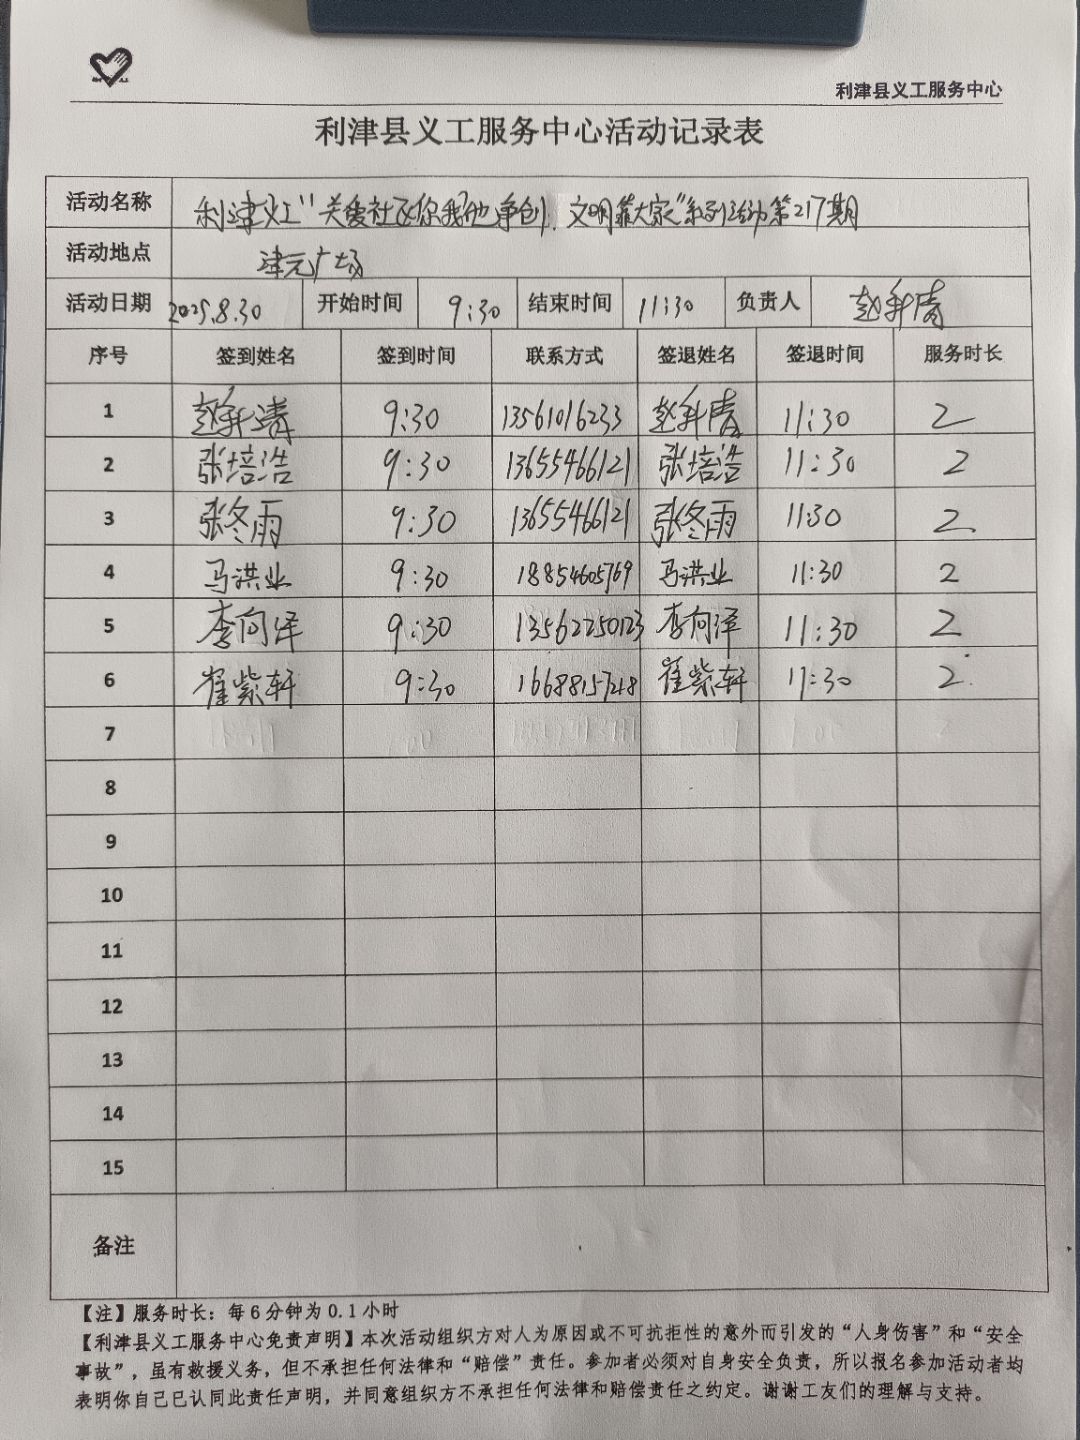 利津县义工服务中心
利津县义工服务中心活动记录表
活动名称 利津义工"关爱社区你我他争创、文明靠大家"系列活动第217期
活动地点 津元广场
活动日期 2025.8.30 开始时间 9:30 结束时间 11:30 负责人 赵新清
序号 签到姓名 签到时间 联系方式 签退姓名 签退时间 服务时长
1 赵新清 9:30 13561016233 赵新清 11:30 2
2 张培浩 9:30 13655466121 张培浩 11:30 2
3 张冬雨 9:30 13655466121 张冬雨 11:30 2
4 马洪业 9:30 18854605769 马洪业 11:30 2
5 李向洋 9:30 13562250123 李向洋 11:30 2
6 崔紫轩 9:30 16688157248 崔紫轩 11:30 2
7
8
9
10
11
12
13
14
15
备注
【注】服务时长：每6分钟为0.1小时
【利津县义工服务中心免责声明】本次活动组织方对人为原因或不可抗拒性的意外而引发的“人身伤害”和“安全
事故”，虽有救援义务，但不承担任何法律和“赔偿”责任。参加者必须对自身安全负责，所以报名参加活动者均
表明你自己已认同此责任声明，并同意组织方不承担任何法律和赔偿责任之约定。谢谢工友们的理解与支持。